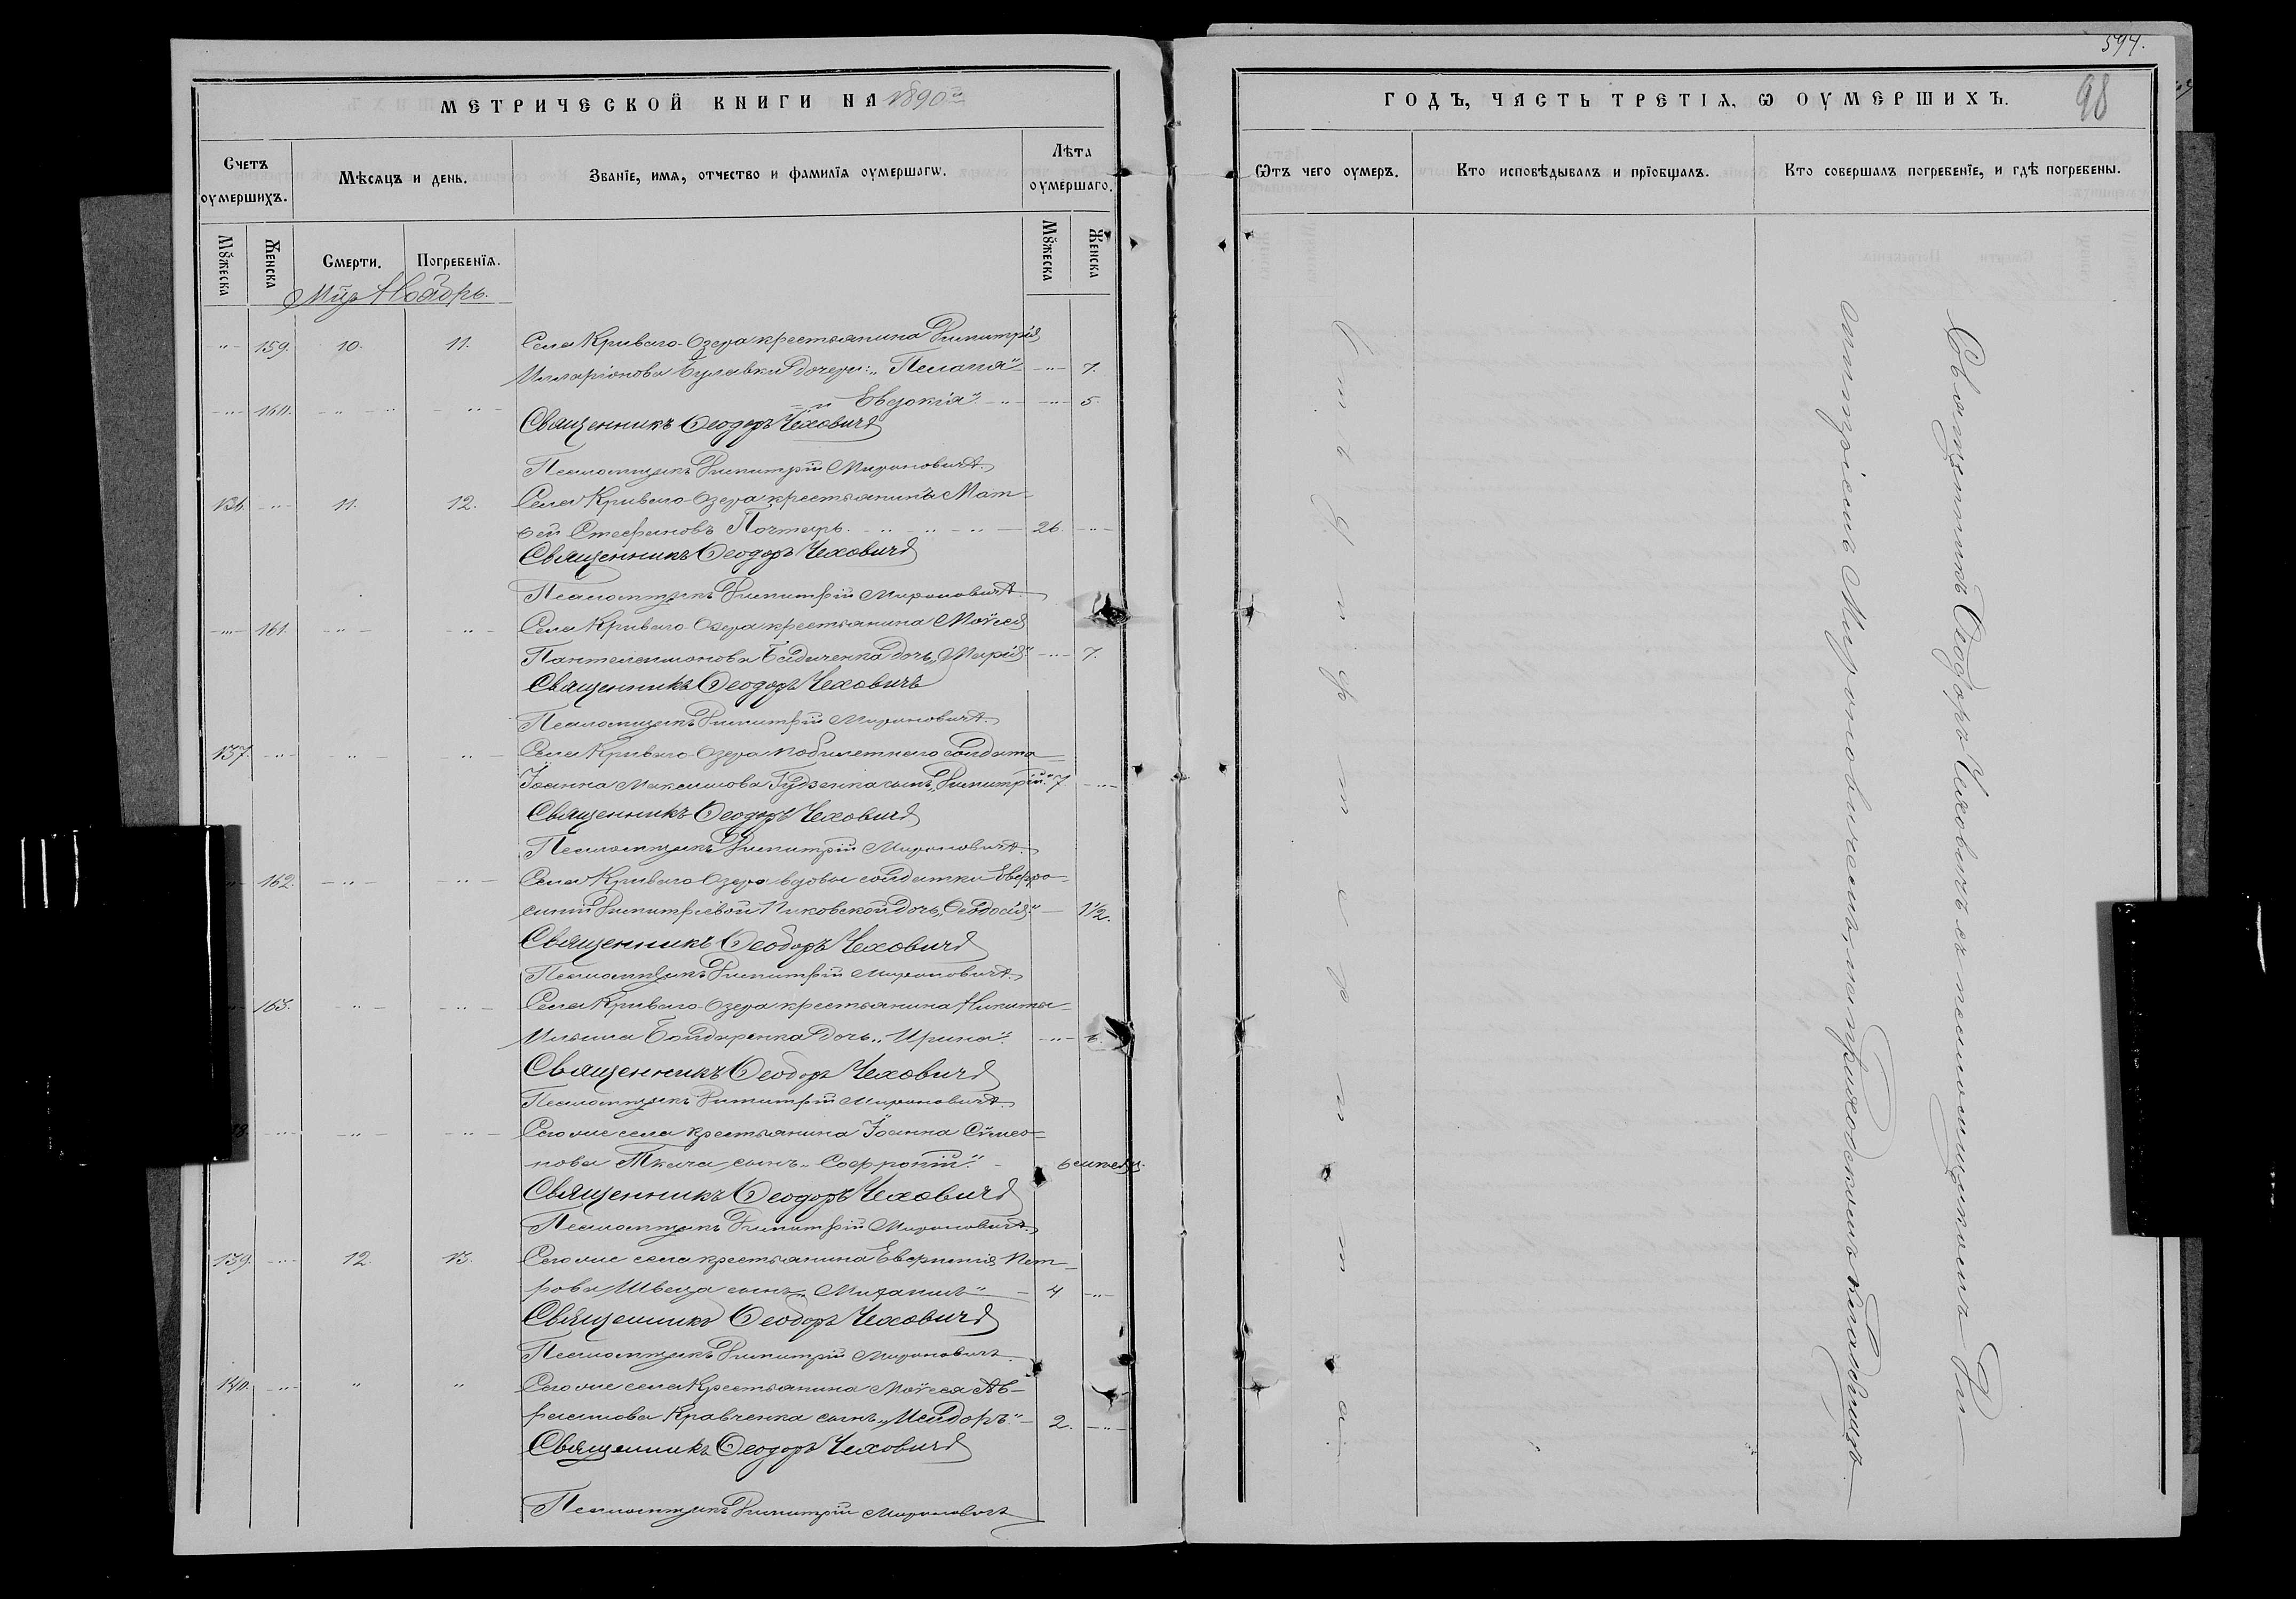 МЕТРИЧЕСКОЙ КНИГИ НА 1890й
Счетъ оумершихъ.
Мѣсяцъ и день.
Званїе, имя, отчество и фамилїя оумершагѡ.
Лѣта оумершаго.
Мꙋжеска
Женска
Смерти.
Погребенїя.
Мꙋжеска
Женска
Мцъ Ноябрь.
-"- 159. 10. 11. Села Криваго-Озера крестьянина Димитрія
Илларіонова Булавки дочери: „Пелагія" -"- 7.
-"- 160. -"- -"- и Евдокія". -"- 5.
Священникъ Ѳеодоръ Чеховичъ
Псаломщикъ Димитрій Мироновичъ
136. -"- 11. 12. Села Криваго-Озера крестьянинъ Мат-
ѳей Стефановъ Почтарь. 26. -"-
Священникъ Ѳеодоръ Чеховичъ
Псаломщикъ Димитрій Мироновичъ
-"- 161. -"- -"- Села Криваго-Озера крестьянина Моѵсея
Пантелеимонова дочь „Марія" -"- 7.
Священникъ Ѳеодоръ Чеховичъ
Псаломщикъ Димитрій Мироновичъ
137. -"- -"- -"- Села Криваго-Озера побилетнаго солдата
Іоанна Максимова Гудзенка сынъ „Димитрій" 7 -"-
Священникъ Ѳеодоръ Чеховичъ
Псаломщикъ Димитрій Мироновичъ
162. -"- -"- Села Криваго-Озера вдовы солдатки Евфро-
синіи Димитріевой Пиковской дочь „Ѳеодосія" 1½.
Священникъ Ѳеодоръ Чеховичъ
Псаломщикъ Димитрій Мироновичъ
163. -"- -"- Села Криваго-Озера крестьянина Никиты
Ильина Бондаренка дочь „Ирина". -"- 6.
Священникъ Ѳеодоръ Чеховичъ
Псаломщикъ Димитрій Мироновичъ
-"- -"- -"- Сего же села крестьянина Іоанна Сѵмео-
нова Ткача сынъ „Софроній".
Священникъ Ѳеодоръ Чеховичъ
Псаломщикъ Димитрій Мироновичъ
139. -"- 12. 13. Сего же села крестьянина Евфимія Пет-
рова Швеца сынъ „Михаилъ" 4 -"-
Священникъ Ѳеодоръ Чеховичъ
Псаломщикъ Димитрій Мироновичъ
140. -"- " " Сего же села крестьянина Моѵсея Ав-
раамова Кравченка сынъ „Исидоръ." 2. -"-
Священникъ Ѳеодоръ Чеховичъ
Псаломщикъ Димитрій Мироновичъ
594.
98
ГОДЪ, ЧАСТЬ ТРЕТІѦ, Ѡ ОУМЕРШИХЪ.
Ѿтъ чего оумеръ.
Кто исповѣдывалъ и прїобщалъ.
Кто совершалъ погребенїе, и гдѣ погребены.
Отъ дифтерита
Священникъ Ѳеодоръ Чеховичъ съ псаломщикомъ Ди-
митріемъ Мироновичемъ, на приходскомъ кладбищѣ